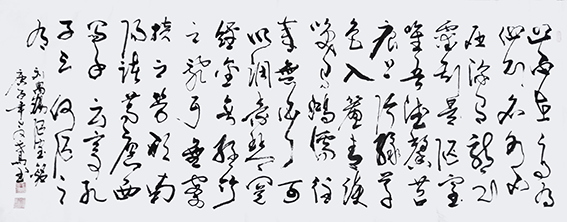 山不在高有
仙则名水不
在深有龙则
灵斯是陋室
惟吾德馨苔
痕上阶绿草
色入帘青谈
笑有鸿儒往
来无白丁可
以调素琴阅
金经无丝竹
之乱耳无案
牍之劳形南
阳诸葛庐西
蜀子云亭孔
子云何陋之
有
刘禹锡陋室铭
年 书